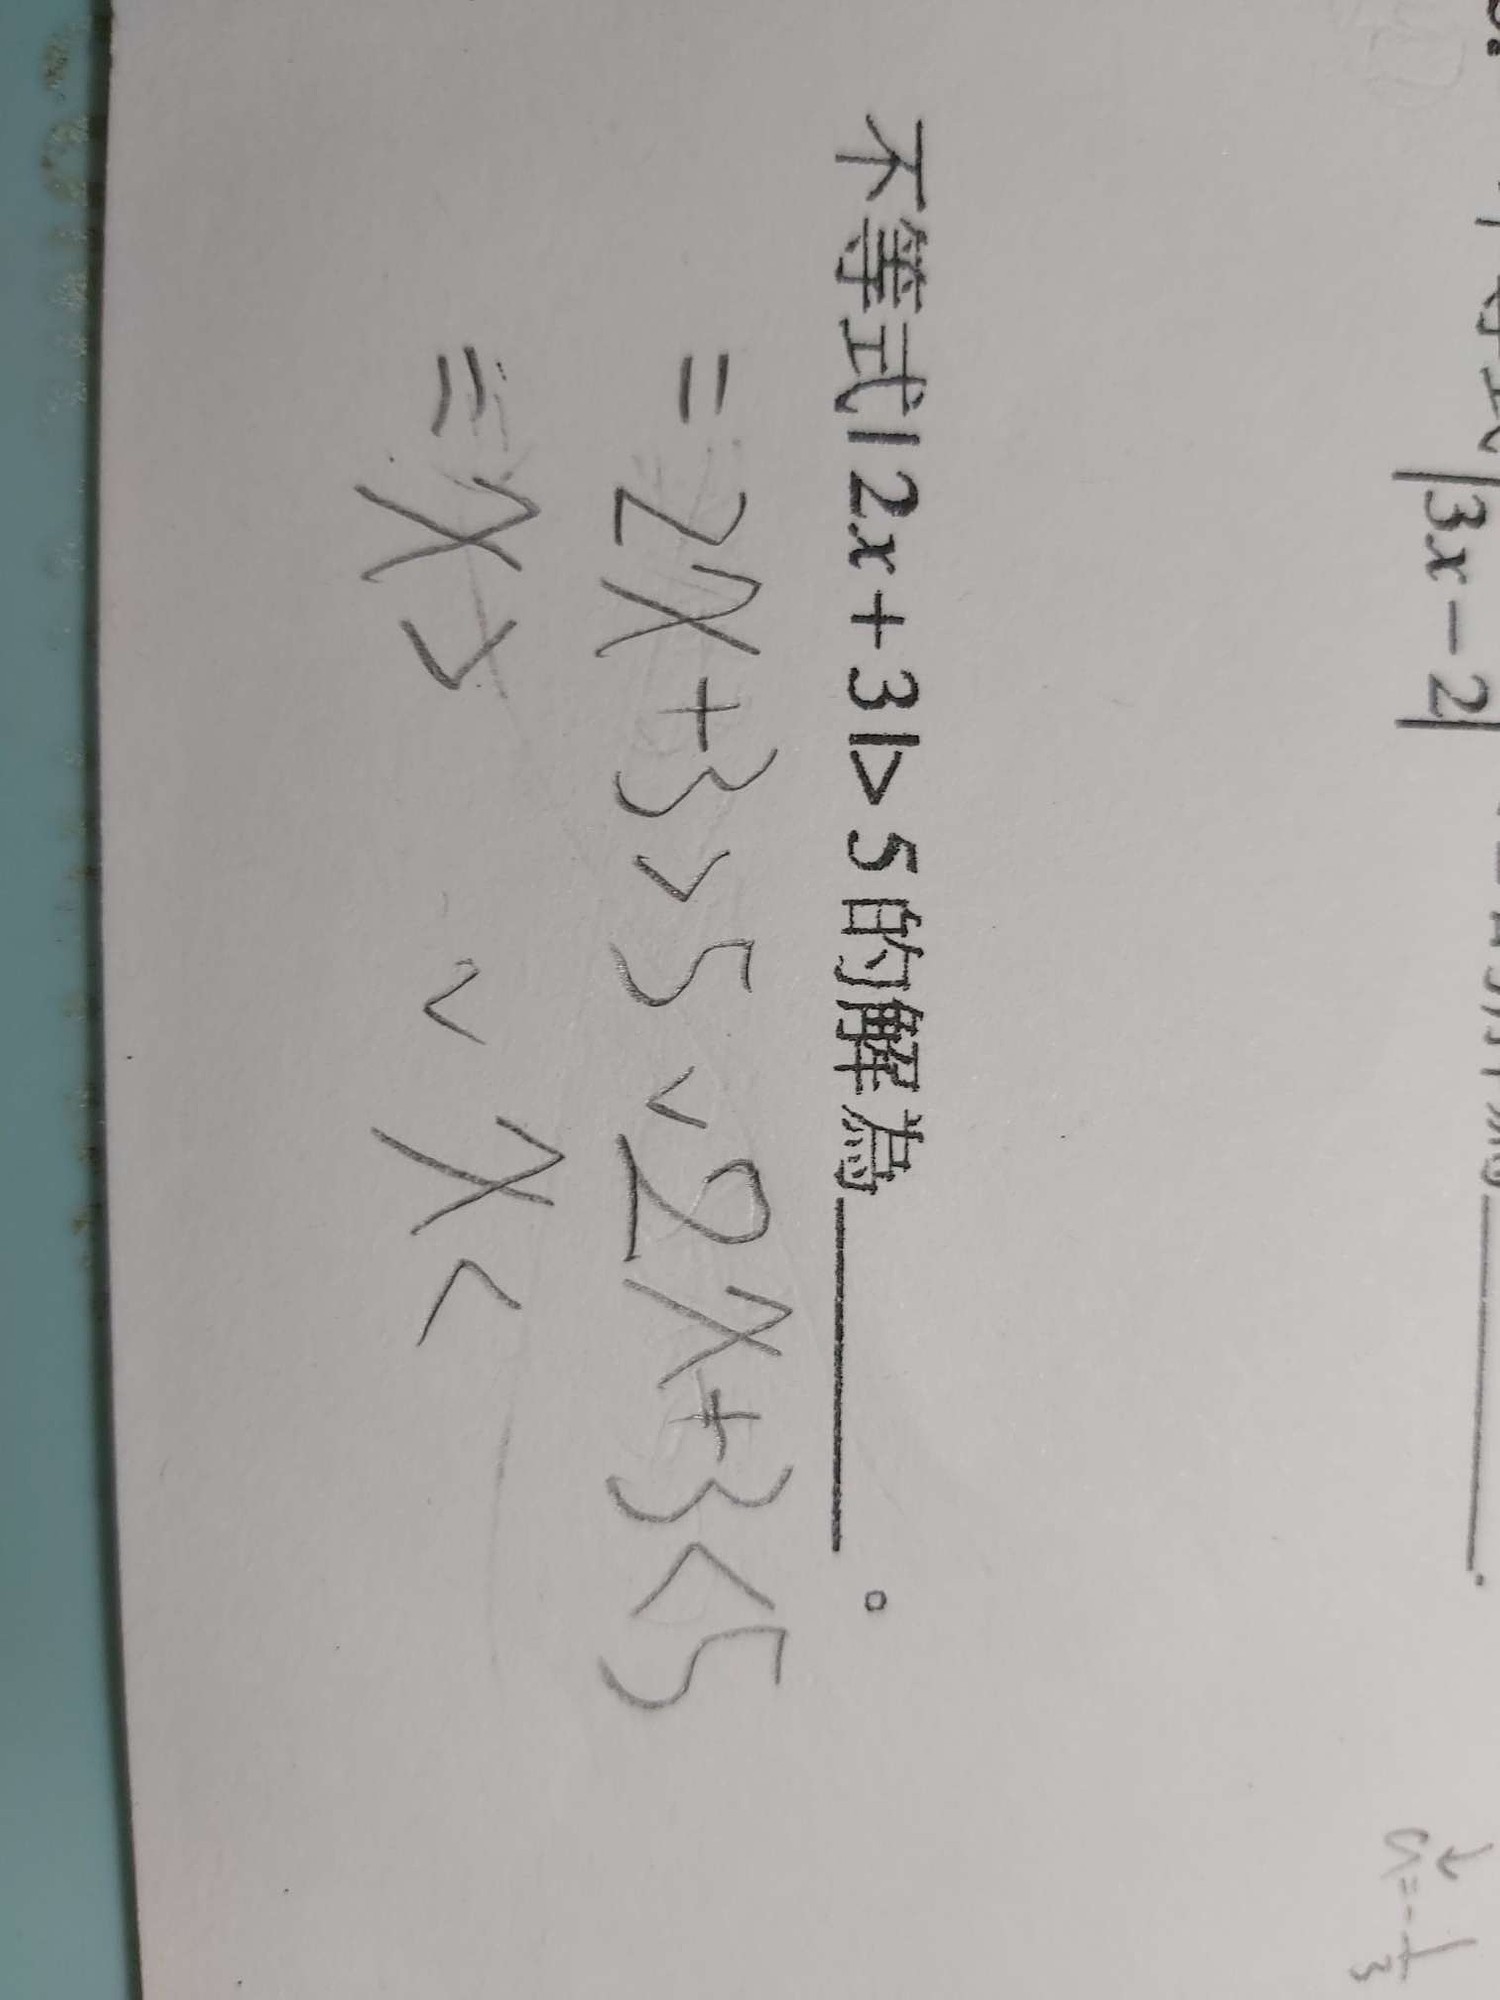 |3x-2|
不等式|2x+3|>5的解為________。
=2x+3>5、2x+3<5
=x> 、x<
a=-1/3